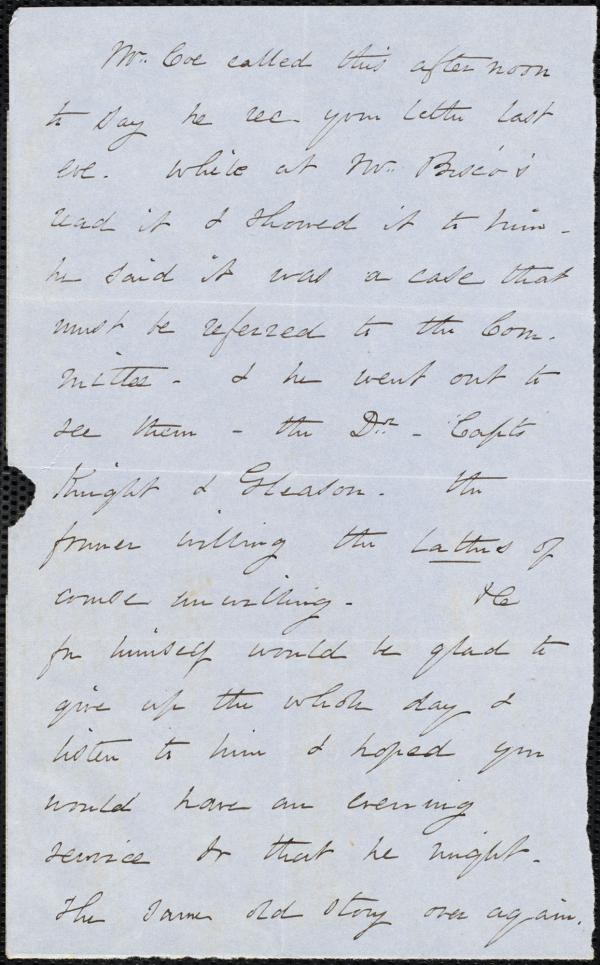 Mr. Coe called this afternoon
to say he rec. your letter last
eve. while at Mr. Bisco's
read it & showed it to him -
he said it was a case that
must be referred to the Com-
mittee - & he went out to
see them - the Dr. - Capts
Knight & Gleason. the
former willing the latters of
course unwilling - He
for himself would be glad to
give up the whole day &
listen to him & hoped you
would have an evening
service so that he might -
The same old story over again.